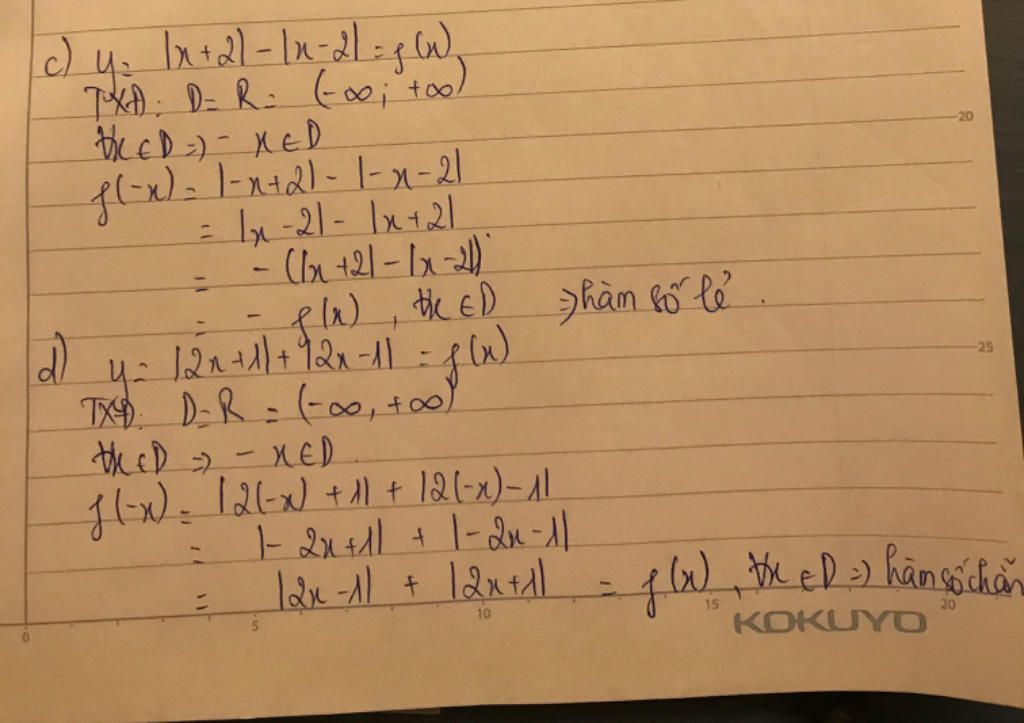 c) y = |x+2| - |x-2| = f(x)
TXĐ: D = R = (-∞; +∞)
∀x ∈ D => - x ∈ D
f(-x) = |-x+2| - |-x-2|
= |x-2| - |x+2|
= - (|x+2| - |x-2|)
= - f(x), ∀x ∈ D => hàm số lẻ.
d) y = |2x+1| + |2x-1| = f(x)
TXĐ: D = R = (-∞, +∞)
∀x ∈ D => - x ∈ D.
f(-x) = |2(-x) + 1| + |2(-x) - 1|
= |- 2x+1| + |-2x-1|
= |2x-1| + |2x+1| = f(x), ∀x ∈ D => hàm số chẵn
20
25
0 5 10 15 20
KOKUYO